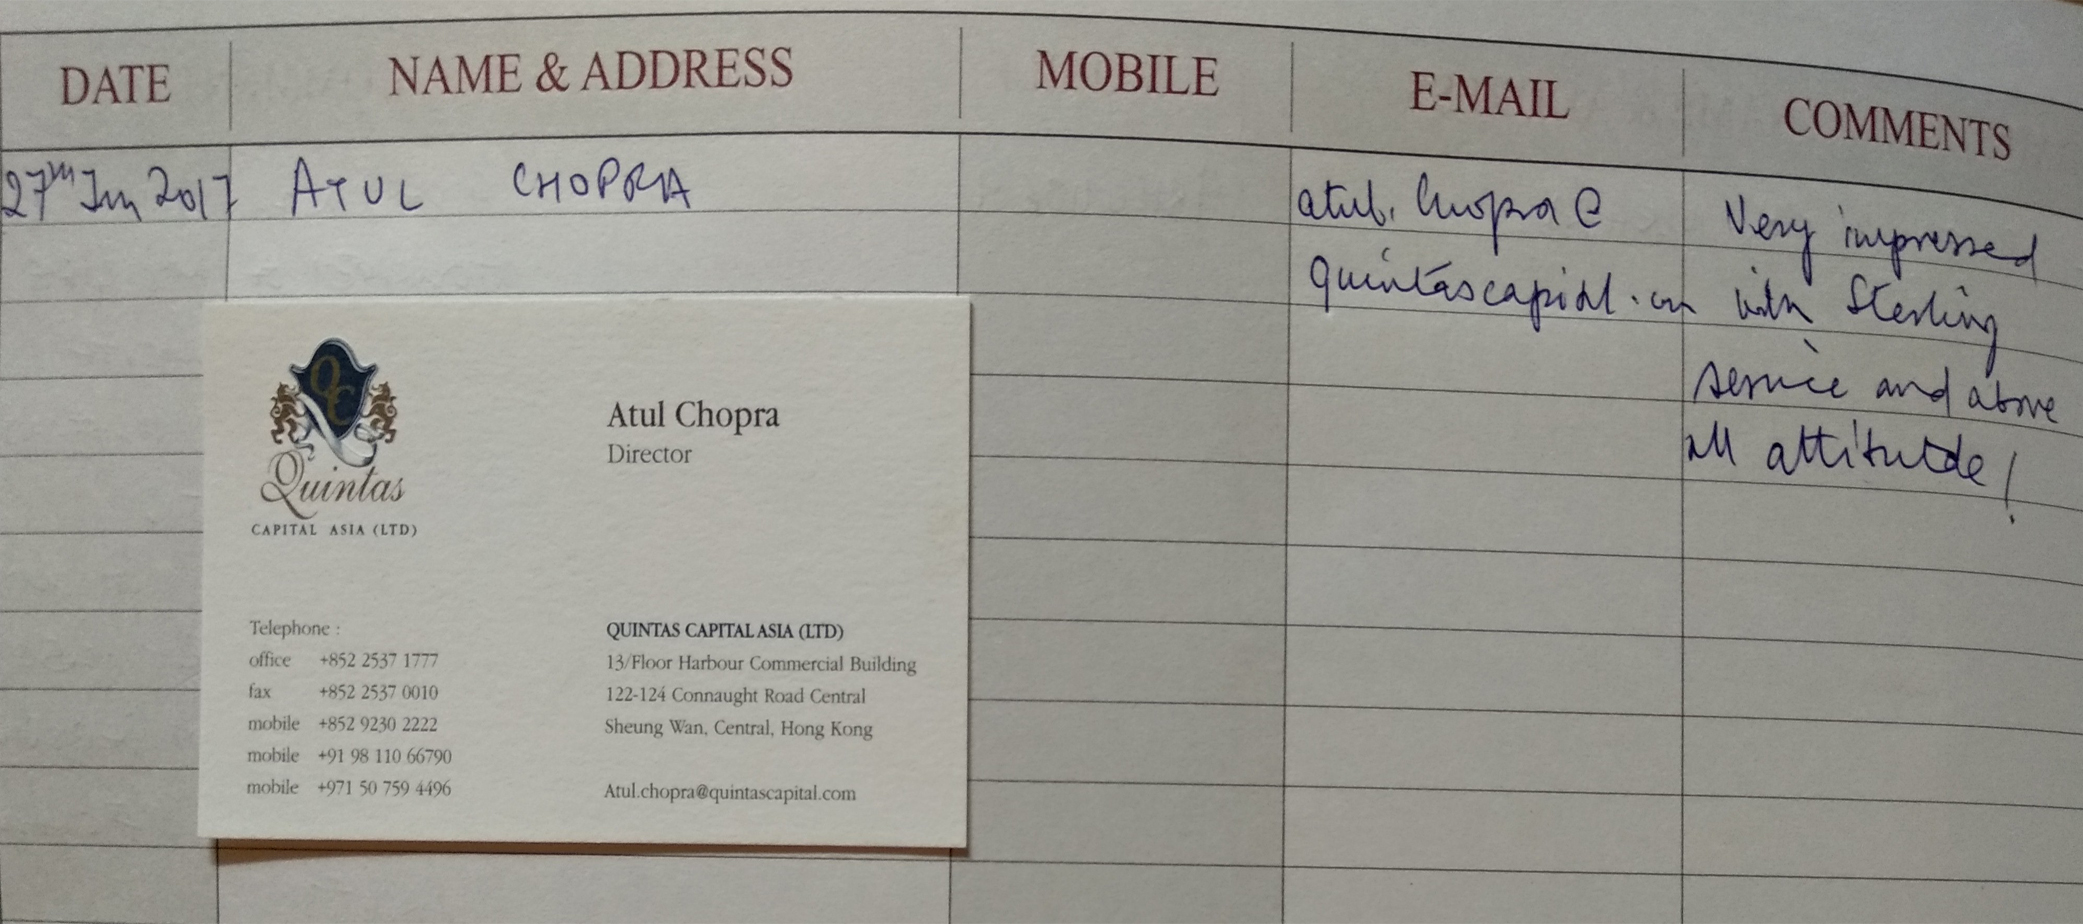 DATE NAME & ADDRESS MOBILE E-MAIL COMMENTS
27th Jun 2017 ATUL CHOPRA atul.chopra@ Very impressed
quintascapital.com with Sterling
service and above
all attitutde!
QC
Quintas
CAPITAL ASIA (LTD)
Atul Chopra
Director
Telephone :
office +852 2537 1777
fax +852 2537 0010
mobile +852 9230 2222
mobile +91 98 110 66790
mobile +971 50 759 4496
QUINTAS CAPITAL ASIA (LTD)
13/Floor Harbour Commercial Building
122-124 Connaught Road Central
Sheung Wan, Central, Hong Kong
Atul.chopra@quintascapital.com